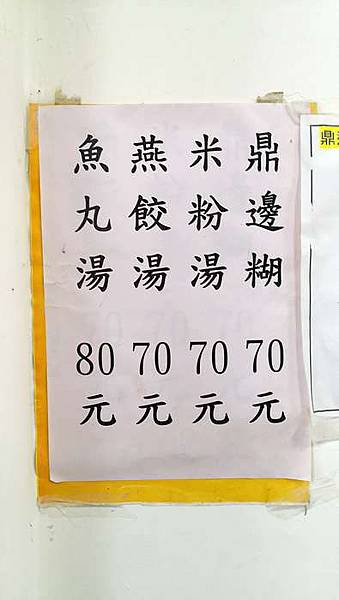 鼎邊糊 70元
米粉湯 70元
燕餃湯 70元
魚丸湯 80元
鼎